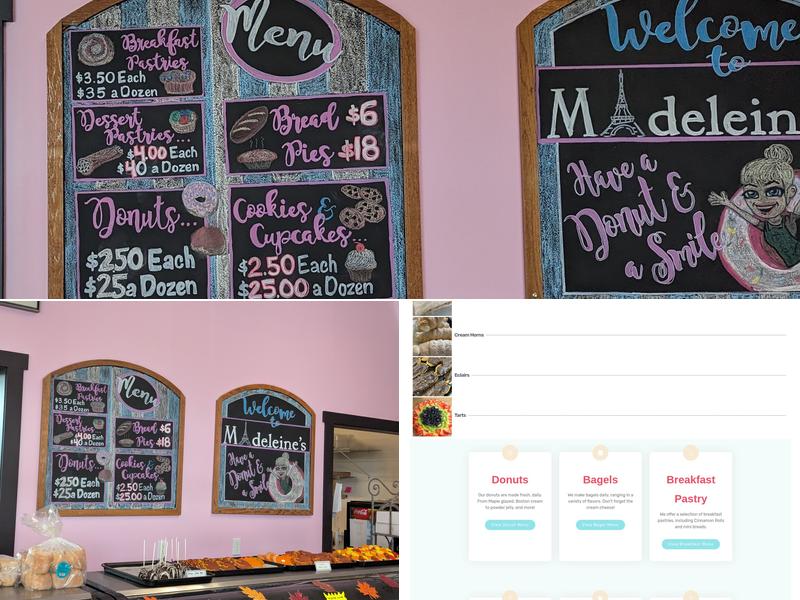 Menu
Breakfast
Pastries
$3.50 Each
$35 a Dozen
Dessert
Pastries...
$4.00 Each
$40 a Dozen
Donuts...
$2.50 Each
$25 a Dozen
Bread $6
Pies $18
Cookies &
Cupcakes...
$2.50 Each
$25.00 a Dozen
Welcome
to
Madelein
Have a
Donut &
a Smile
Menu
Breakfast
Pastries
$3.50 Each
$35 a Dozen
Dessert
Pastries...
$4.00 Each
$40 a Dozen
Donuts...
$2.50 Each
$25 a Dozen
Bread $6
Pies $18
Cookies &
Cupcakes...
$2.50 Each
$25.00 a Dozen
Welcome
to
Madeleine's
Have a
Donut &
a Smile
Cream Horns
Eclairs
Tarts
Donuts
Our donuts are made fresh, daily.
From Maple glazed, Boston cream
to powder jelly, and more!
View Donut Menu
Bagels
We make bagels daily, ranging in a
variety of flavors. Don't forget the
cream cheese!
View Bagel Menu
Breakfast
Pastry
We offer a selection of breakfast
pastries, including Cinnamon Rolls
and mini breads.
View Breakfast Menu